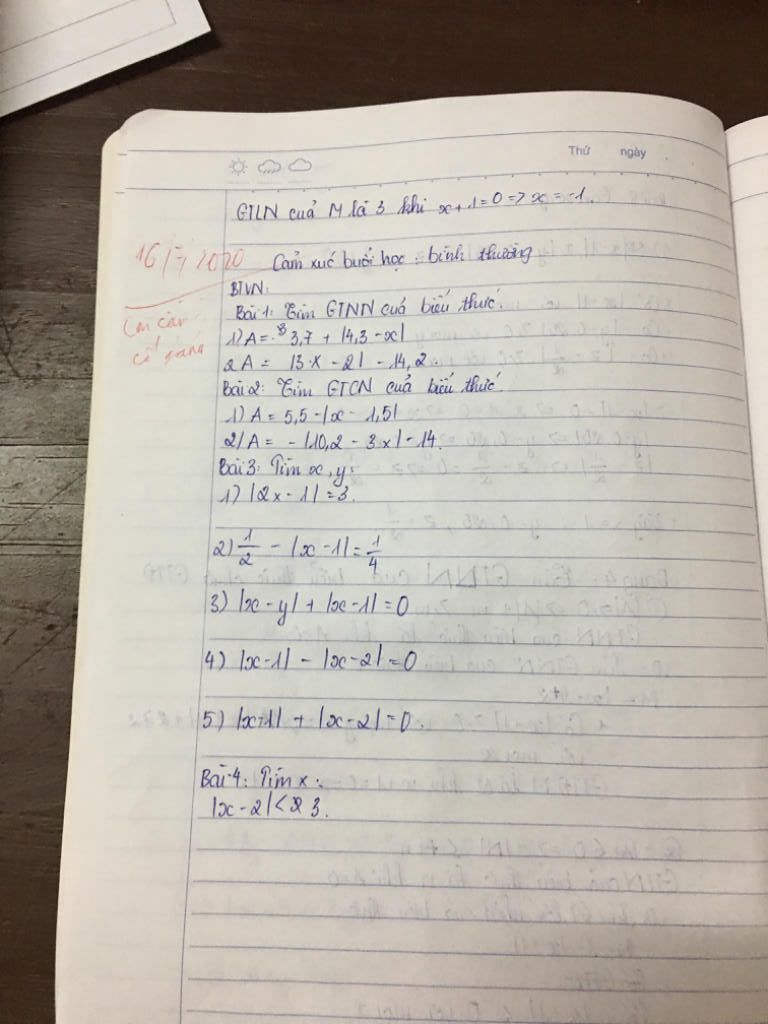 Thứ ngày
GTLN cuả M là 3 khi x+1=0=>x=-1.
16/7/2020
Cảm xúc buổi học : bình thường
BTVN:
Con cần
cố gắng
Bài 1: Tìm GTNN cuả biểu thức.
1) A= 3,7 + |4,3-x|
2 A = |3.x - 2| - 14,2.
Bài 2: Tìm GTLN cuả biểu thức.
1) A = 5,5-|x - 1,5|
2/ A = - |10,2 - 3x| - 14.
Bài 3: Tìm x, y:
1) |2x-1|=3.
2) 1/2 - |x-1|=1/4
3) |x-y| + |x-1|=0
4) |x-1| - |x-2|=0
5) |x+1| + |x-2|=0
Bài 4: Tìm x:
|x-2|< 3.